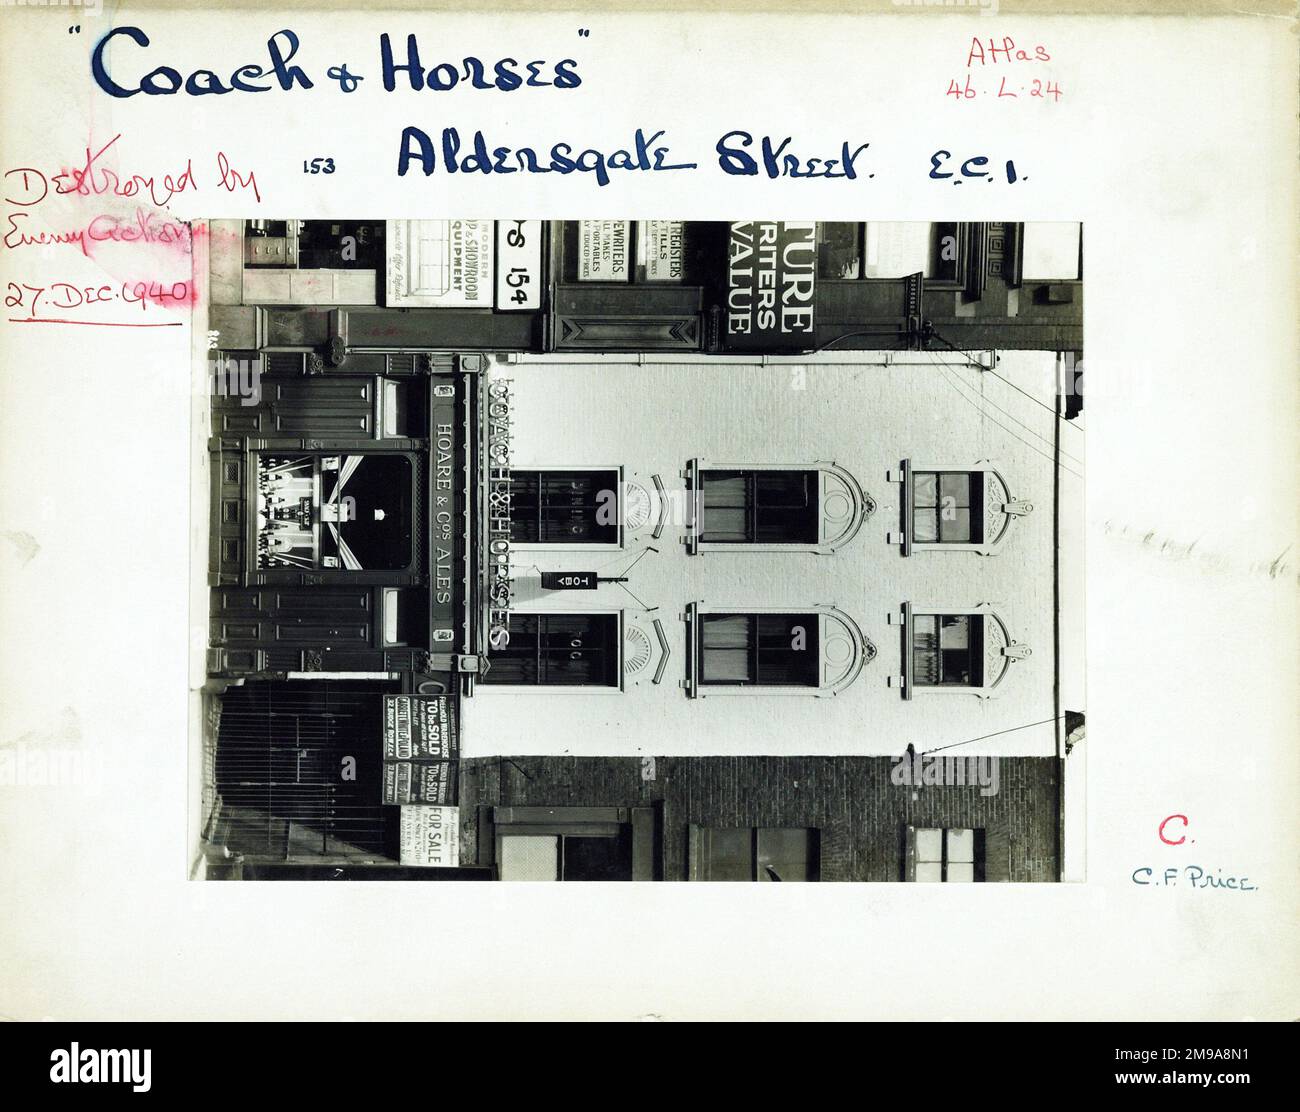 "Coach & Horses"
Atlas
46. L. 24
153 Aldersgate Street. E.C.1.
Destroyed by
Enemy Action
27. DEC. 1940
MODERN
P & SHOWROOM
EQUIPMENT
S 154
EWRITERS
ALL MAKES
PORTABLES
REGISTERS
TILLS
TURE
RITERS
VALUE
COACH & HORSES
HOARE & CO'S ALES
DINING
TOBY
TO BE SOLD
TO BE SOLD
FOR SALE
7
C.
C. F. Price.
alamy
Image ID: 2M9A8N1
www.alamy.com